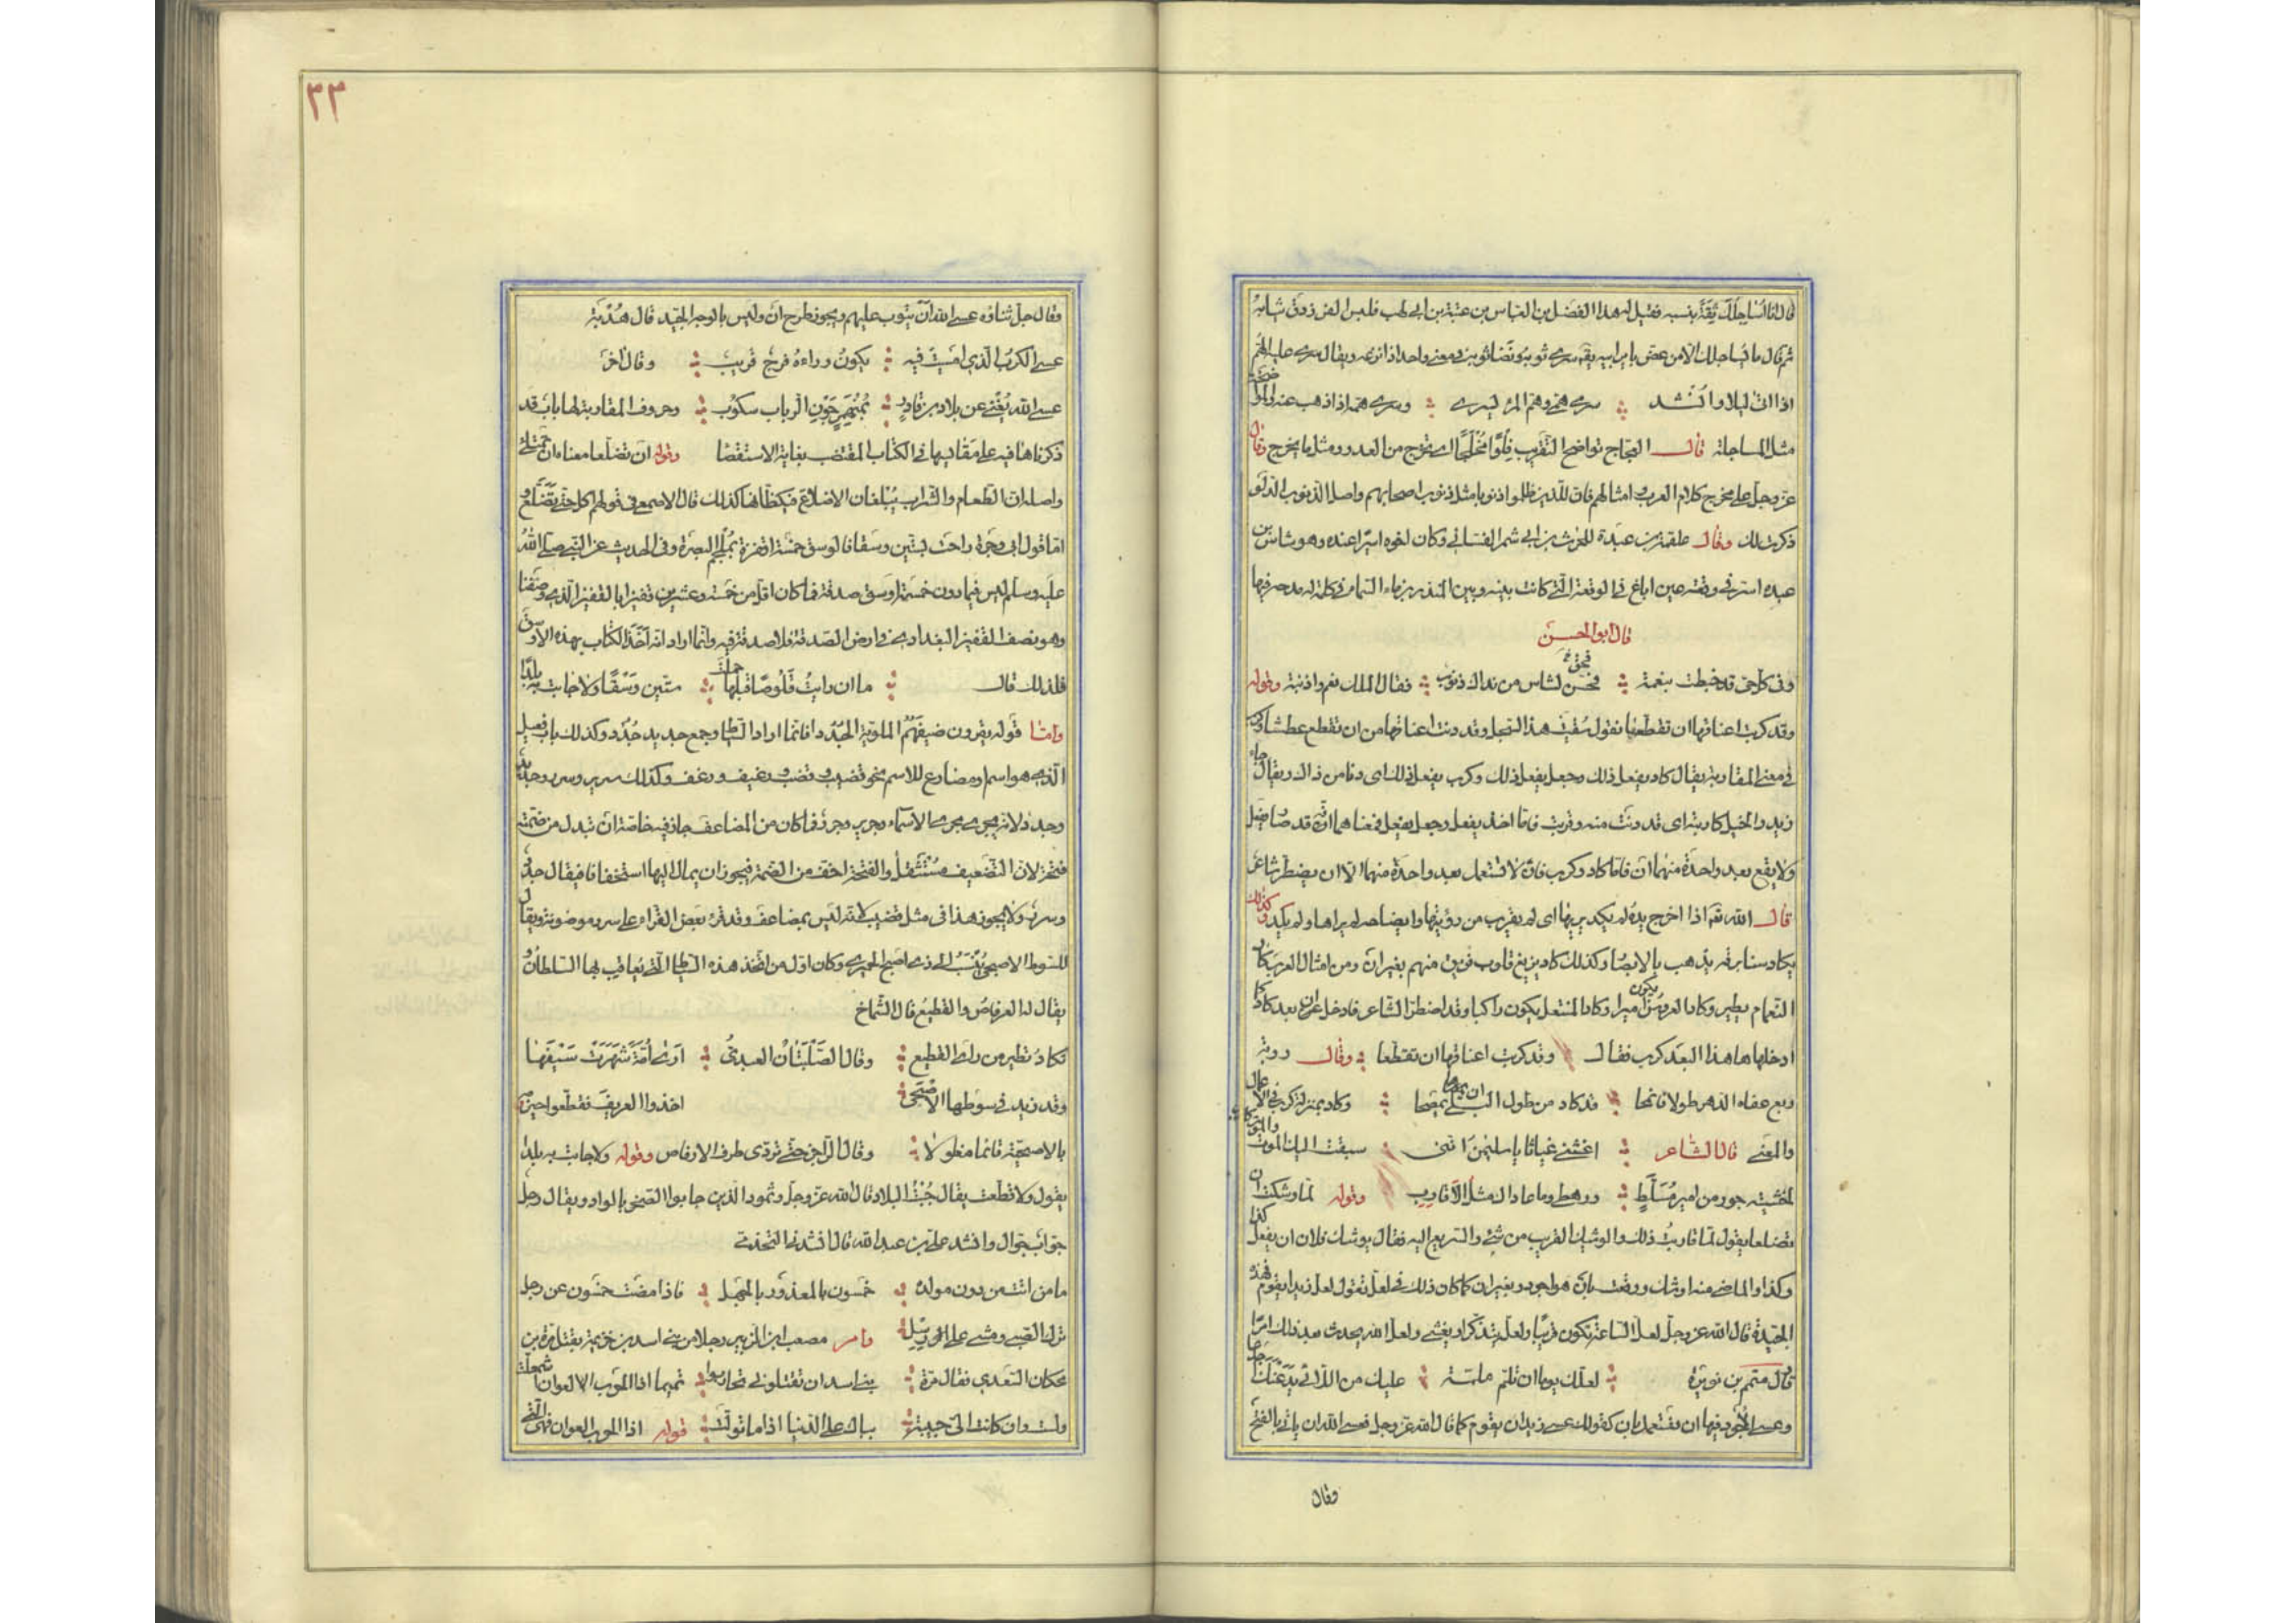 قال انا اساجلك ثقة بنسبه فقيل له هذا الفضل بن العباس بن عتبة بن ابى لهب فلبس الفرزدق ثيابه
ثم قال ما يساجلك الا من عض باير ابيه يقه سرى ثوبه ونضا ثوبه فى معنى واحد اذا نزعه ويقال سرى عليه الهم
اذا اتى ليلا وانشد سرى همى وهم المرء يسرى وسرى همه اذا ذهب عنه والمواضخة
مثل المساجلة قال العجاج تواضخ التقريب قلوا مخلجا اى تخرج من العدو ومثل ما يخرج وقال
عز وجل على مخرج كلام العرب وامثالهم فان للذين ظلموا ذنوبا مثل ذنوب اصحابهم واصل الذنوب الدلو
ذكرت لك وقال علقمة بن عبدة للحرث بن ابى شمر الغسانى وكان اخوه اسيرا عنده وهو شاس بن
عبده اسر فى وقعة عين اباغ فى الوقعة التى كانت بينه وبين المنذر بن ماء السماء فى كلمة له مدحه فيها
قال ابو الحسن
وفى كل حى قد خبطت بنعمة فحق لشاس من نداك ذنوب فقال الملك نعم واذنبة وقوله
وقد كربت اعناقها ان تقطعا يقول سقيت هذا السجل وقد دنت اعناقها من ان تقطع عطشا وكرب
فى معنى المقاربة يقال كاد يفعل ذلك وجعل يفعل ذلك وكرب يفعل ذلك اى دنا من ذاك ويقال جاء
زيد والخيل كاربته اى قد دنت منه وقربت فاما اخذ يفعل وجعل يفعل فمعناهما انه قد صار يفعل
ولا يقع بعد واحدة منهما ان فاما كاد وكرب فان لا تستعمل بعد واحدة منهما الا ان يضطر شاعر
قال الله تعـ اذا اخرج يده لم يكد يريها اى لم يقرب من رؤيتها وايضاحه لم يراها ولم يكد وكذلك
يكاد سنا برقه يذهب بالابصار وكذلك كاد يزيغ قلوب فريق منهم بغير ان ومن امثال العرب كاد
النعام يطير وكاد العروس يكون اميرا وكاد المنتعل يكون راكبا وقد اضطر الشاعر فادخل ان بعد كاد كما
ادخلها هذا البعد كرب فقال وقد كربت اعناقها ان تقطعا وقال روبة
وبع عفاه الدهر طولا فانمحا قد كاد من طول البلى ان يمصحا وكاد بمنزلة كرب فى الاعمال
والمعنى قال الشاعر اغثنى غياثا يا سليمن اننى سبقت اليك الموت والموت
لخشيته جور من امير مسلط ورهطى وما عاداك مثل الاقارب وقوله لما وشكت ان
تضلعا يقول لما قاربت ذلك والوشيك القريب من شئ والسريع اليه فقال يوشك فلان ان يفعل كذا
وكذا والماضى منه اوشك ووقعت بان هو اجود وبغير ان كما كان ذلك فى لعل تقول لعل زيدا يقوم فهذه
الجيدة قال الله عز وجل لعل الساعة تكون قريبا ولعله يتذكر او يخشى ولعل الله يحدث بعد ذلك امرا
قال متمم بن نويرة لعلك يوما ان تلم ملمة عليك من اللائى يدعنك
وعسى الاجود فيها ان تستعمل بان كقولك عسى زيد ان يقوم كما قال الله عز وجل فعسى الله ان ياتى بالفتح
وقال
٣٣
وقال جل ثناؤه عسى الله ان يتوب عليهم ويجوز طرح ان وليس بالوجه الجيد قال هدبة
عسى الكرب الذى امسيت فيه يكون وراءه فرج قريب وقال اخر
عسى الله يغنى عن بلاد بن قادر بمنهمر جون الرباب سكوب وحروف المقاربة لها باب قد
ذكرناها فيه على مقاييسها فى الكتاب المقتضب بغاية الاستقصا وقوله ان تضلعا معناه ان تمتلئ
واصله ان الطعام والشراب يبلغان الاضلاع فيكظانها كذلك قال الاصمعى فى قولهم اكل حتى تضلع و
اما قول ابى وجزة راحت بستين وسقا فالوسق خمسة اقفزة بملجم البصرة وفى الحديث عن النبى صلى الله
عليه وسلم ليس فيما دون خمسة اوسق صدقة فما كان اقل من خمسة وعشرين قفيزا بالقفيز الذى وصفنا
وهو نصف القفيز البغدادى فى ارض الصدقة فلا صدقة فيه وانما اراد انه اخذ الكتاب بهذه الاوسق
فلذلك قال ما ان رايت قلوصا قبلها حملت ستين وسقا ولا جابت به بلدا
واما قوله يقرون ضيفهم الملوية الجددا فانما اراد السياط وجمع جديد جدد وكذلك باب فعيل
الذى هو اسم او مضارع للاسم نحو قضيب وقضب ورغيف ورغف وكذلك سرير وسرر وجديد
وجدد لانه يجرى مجرى الاسماء وجرير وجرر فما كان من المضاعف جاز فيه خاصة ان تبدل من ضمته
فتحة لان التضعيف مستثقل والفتحة اخف من الضمة فيجوز ان يمال اليها استخفافا فيقال جدد
وسرر ولا يجوز هذا فى مثل قضيب لانه ليس بمضاعف وقد قرء بعض القراء على سرر موضونة ويقال
للسوط الاصبحى ينسب الى ذى اصبح الحميرى وكان اول من اتخذ هذه السياط التى يعاقب بها السلطان و
يقال له العرفاص والقطيع قال الشماخ
تكاد تطير من راى القطيع وقال الصلتان العبدى ارى امة شهرت سيفها
وقد زيد فى سوطها الاصبحى اخذوا العريف فقطعوا حيزومه
بالاصبحية قائما مغلولا وقال الراجز حتى تردى طرف الارفاص وقوله ولا جابت به بلدا
يقول ولا قطعت يقال جبت البلاد قال الله عز وجل وثمود الذين جابوا الصخر بالواد ويقال رجل
جواب جوال وانشد على بن عبد الله قال انشدنى التحذمى
ما من اتت من دون مولده خمسون بالمعذور بالجهل فاذا مضت خمسون عن رجل
ترك الصبى ومشى على رسل وامر مصعب ابن الزبير رجلا من بنى اسد بن خزيمة بقتل مرة بن
محكان السعدى فقال مرة بنى اسد ان تقتلونى تحاربوا تميما اذا الحرب العوان اشمعلت
ولست وان كانت الى حبيبة بباك على الدنيا اذا ما تولت قوله اذا الحرب العوان فهى التى